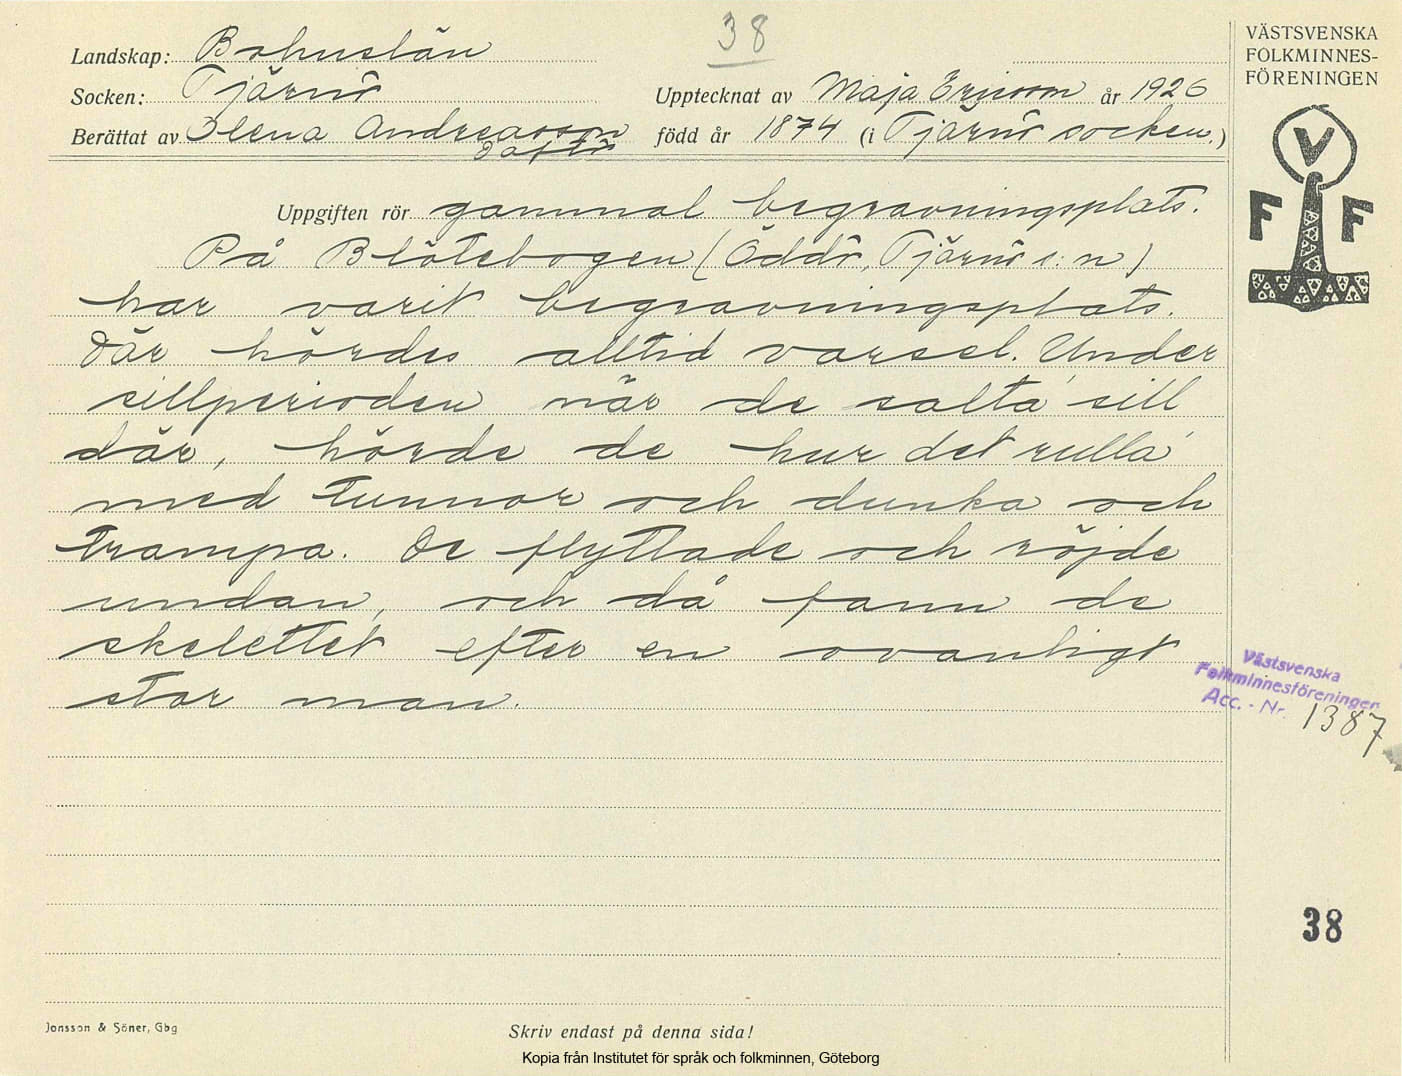 38
Landskap: Bohuslän
Socken: Tjärnö
Upptecknat av Maja Ericson år 1926
Berättat av Olena Andreasson
Dafter
född år 1874 (i Tjärnö socken.)
VÄSTSVENSKA
FOLKMINNES-
FÖRENINGEN
V
F F
Uppgiften rör gammal begravningsplats.
På Blötebogen (Öddö, Tjärnö s:n)
har varit begravningsplats.
Där hördes alltid varsel. Under
sillperioden när de salta' sill
där, hörde de hur det rulla'
med tunnor och dunka och
trampa. De flyttade och röjde
undan, och då fann de
skelettet efter en ovanligt
stor man.
Västsvenska
Folkminnesföreningen
Acc. - Nr. 1387
38
Jonsson & Söner, Gbg
Skriv endast på denna sida!
Kopia från Institutet för språk och folkminnen, Göteborg